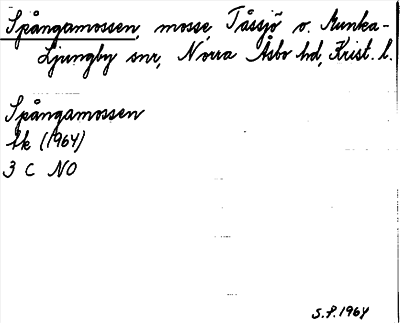 Spångamossen, mosse, Tåssjö o. Munka-
Ljungby snr, Norra Åsbo hd, Krist. l.
Spångamossen
Ek (1964)
3 C NO
S.P. 1964